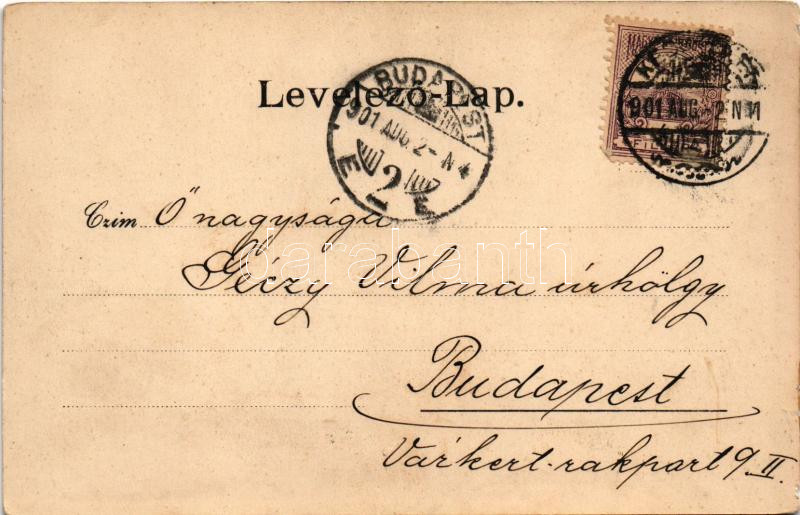 Levelező-Lap.
BUDAPEST
901 AUG. 2 - N 4
E 2 E
901 AUG. 2 N 11
FIL
Czim Ő nagysága
Géczy Vilma úrhölgy
Budapest
Várkert-rakpart 9 II.
darabanth